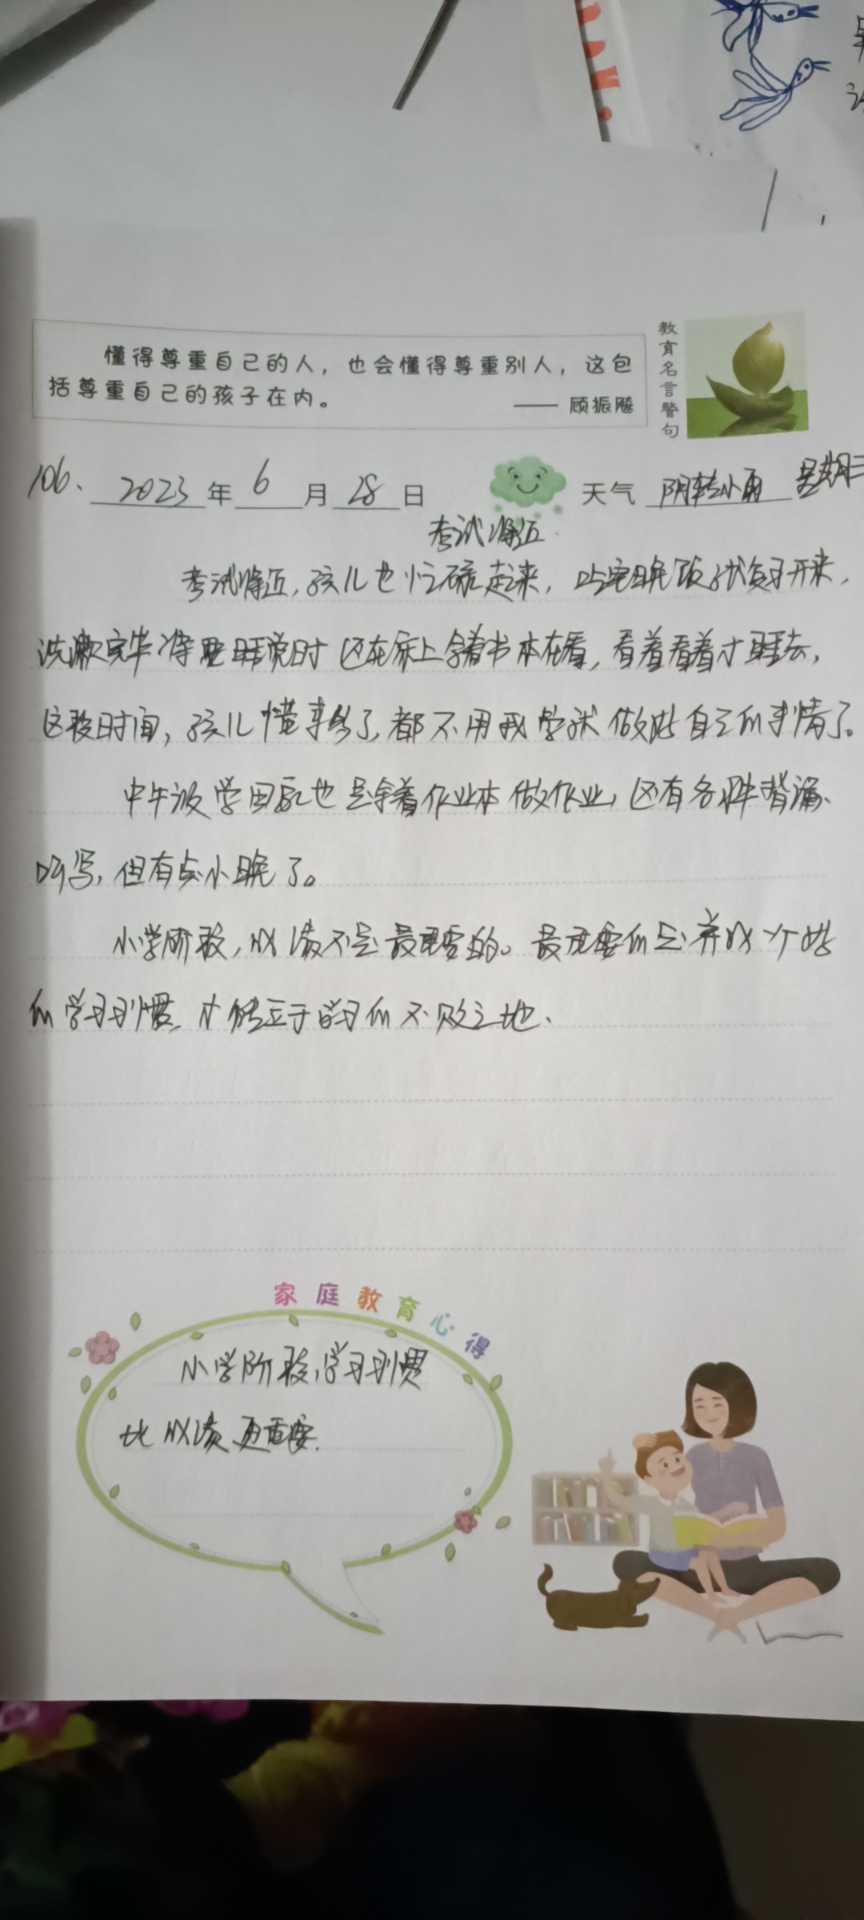 懂得尊重自己的人，也会懂得尊重别人，这包
括尊重自己的孩子在内。
—— 顾振飚
教育名言警句
106、2023年6月28日 天气 阴转小雨 星期三
考试临近
考试临近，孩儿也忙碌起来，吃完晚饭就复习开来，
洗漱完毕准备睡觉时还在床上拿着书本在看，看着看着才睡去，
这段时间，孩儿懂事多了，都不用我学就做好自己的事情了。
中午放学回家也是拿着作业本做作业，还有各种背诵、
听写，但有点小晚了。
小学阶段，成绩不是最重要的。最重要的是养成一个好
的学习习惯，才能立于学习的不败之地、
家庭教育心得
小学阶段，学习习惯
比成绩更重要.